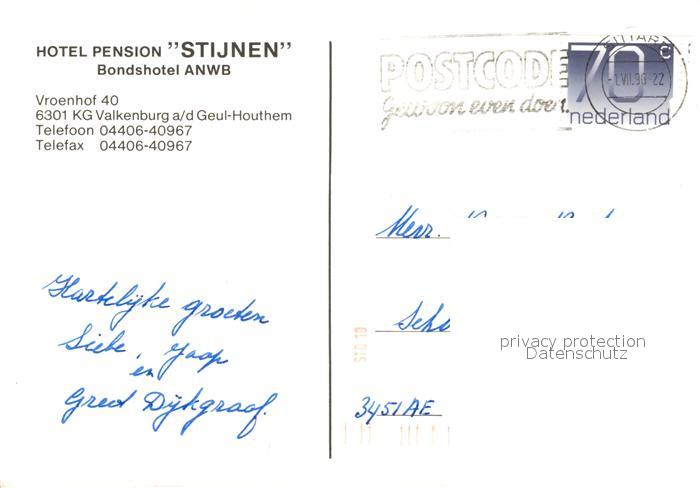 HOTEL PENSION "STIJNEN"
Bondshotel ANWB
Vroenhof 40
6301 KG Valkenburg a/d Geul-Houthem
Telefoon 04406-40967
Telefax 04406-40967
Hartelijke groeten
Siebe, Jaap
en
Greet Dijkgraaf.
POSTCODE
Gewoon even doen
70 c
nederland
-1.VII.96-22
Mevr.
Scho
privacy protection
Datenschutz
STD 19
3451AE